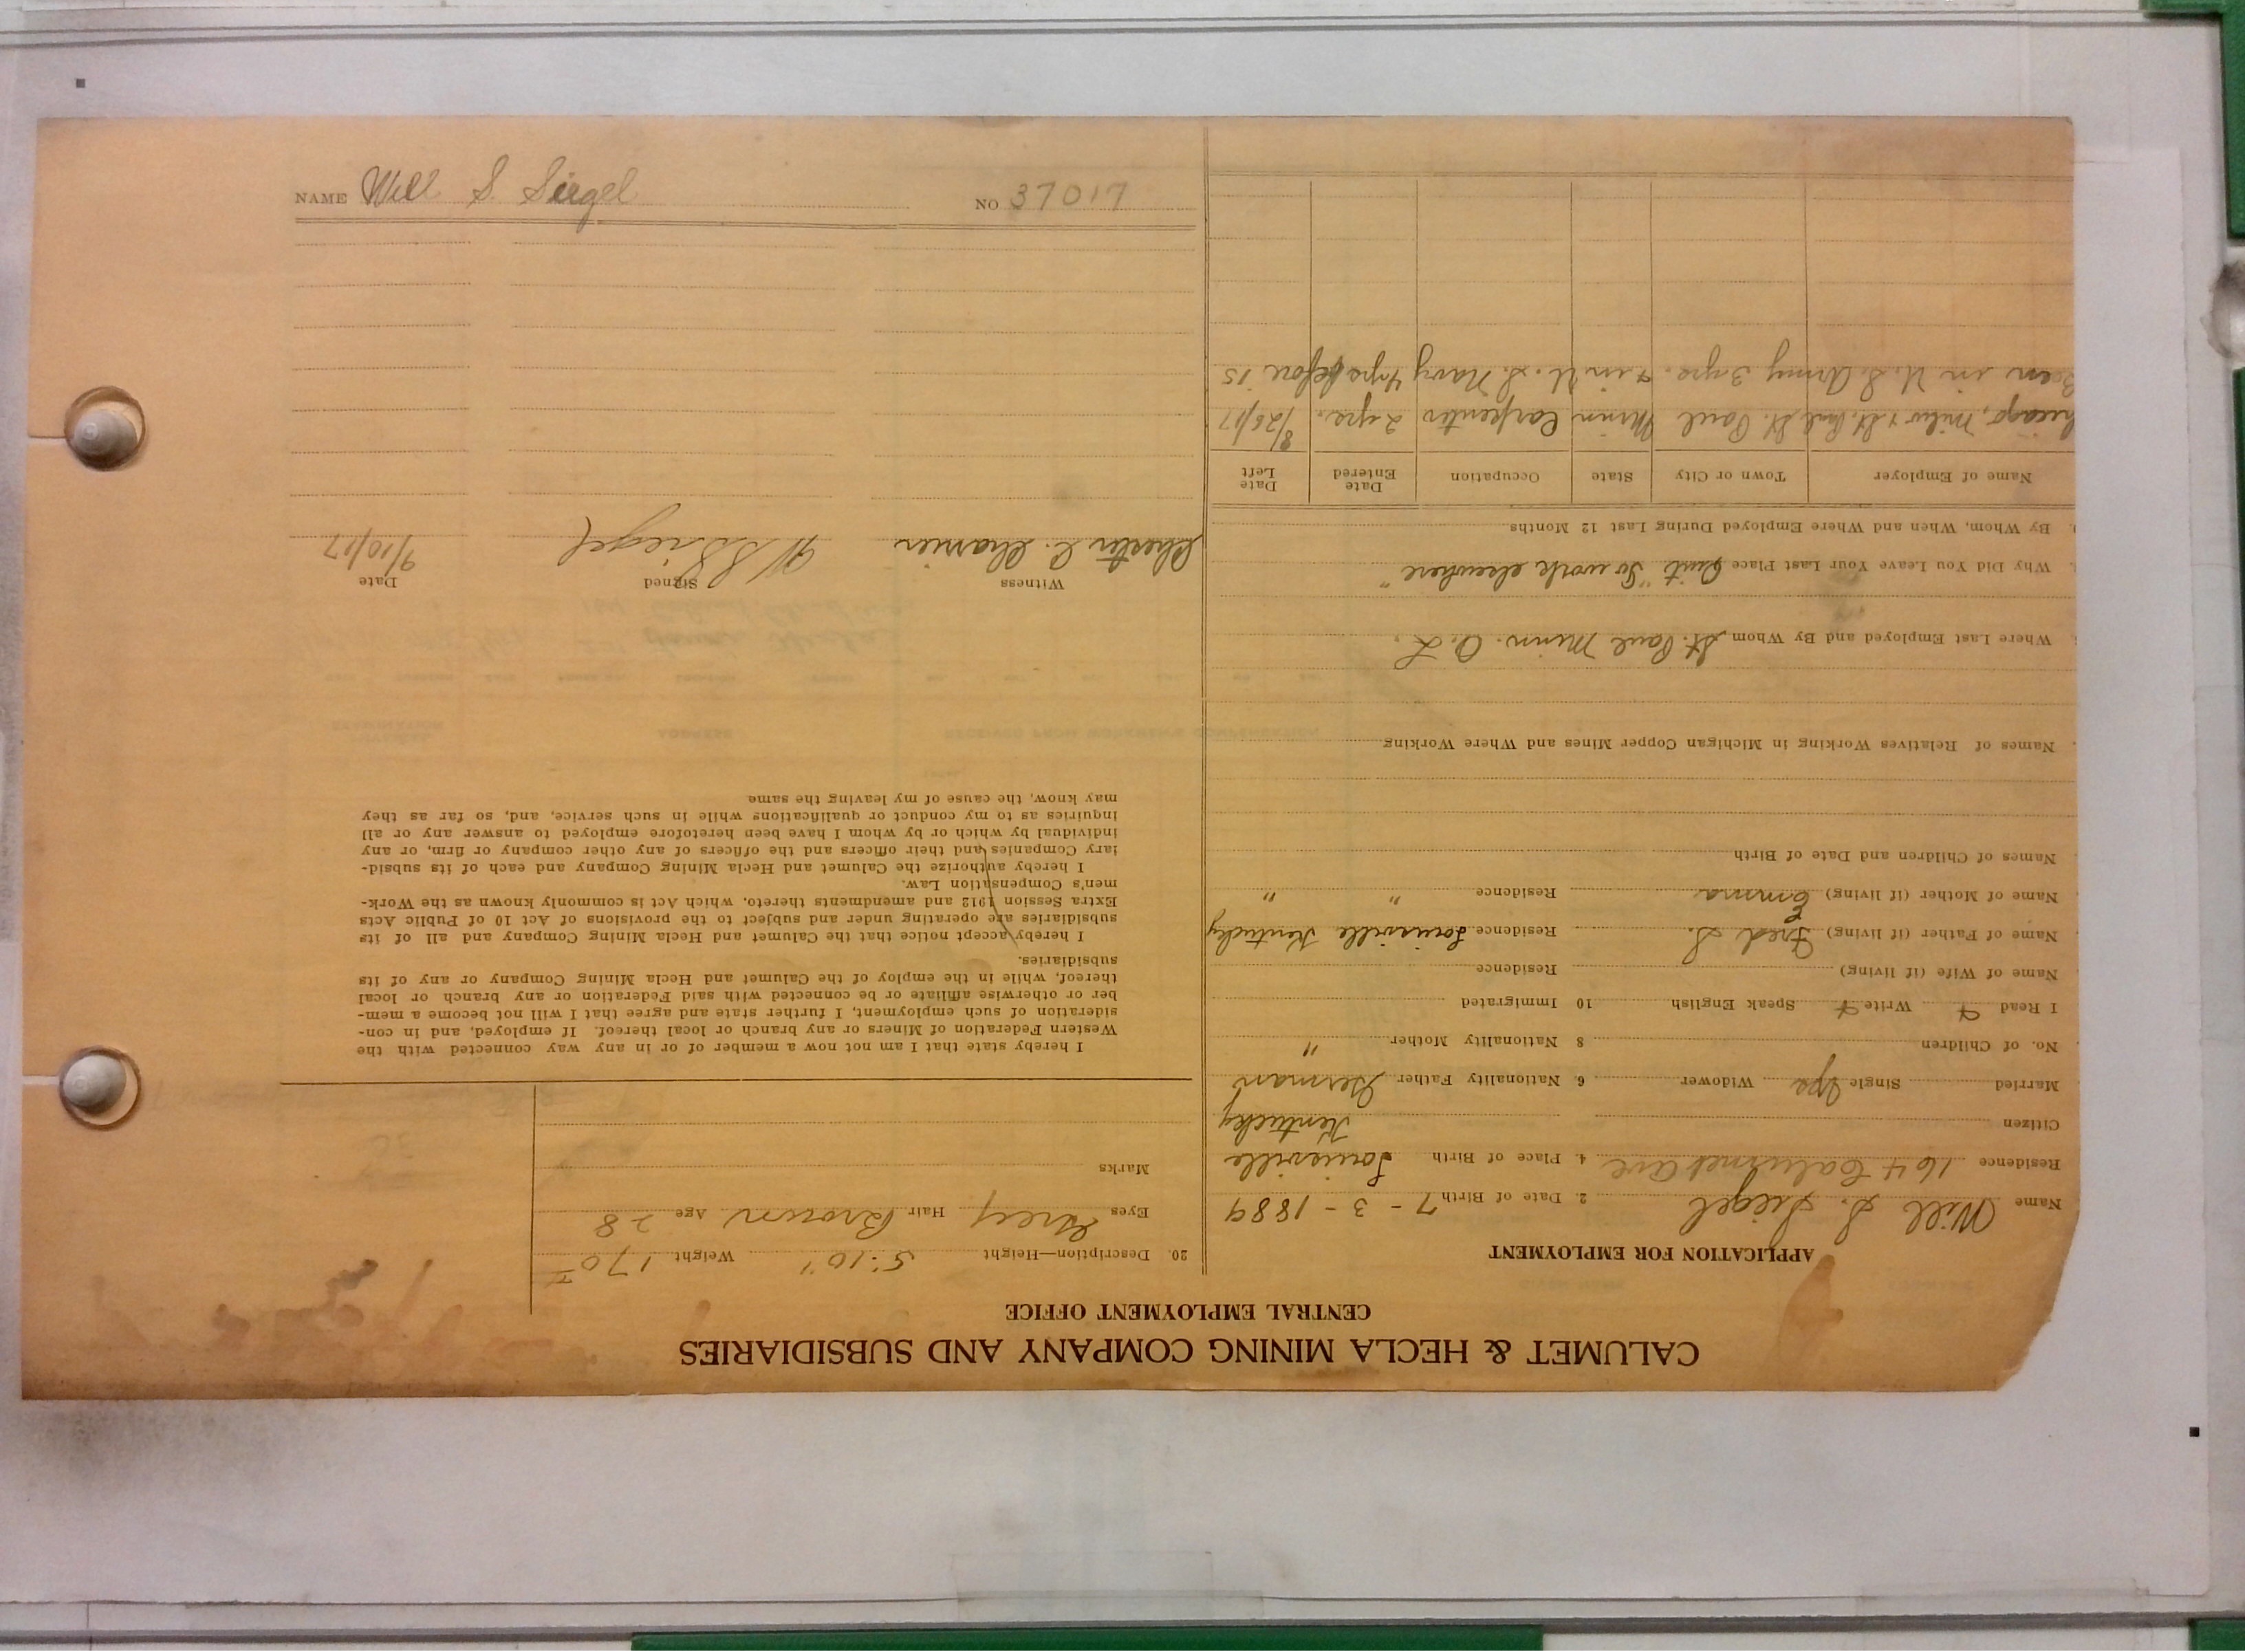 CALUMET & HECLA MINING COMPANY AND SUBSIDIARIES
CENTRAL EMPLOYMENT OFFICE
APPLICATION FOR EMPLOYMENT
Name Will S. Siegel 2. Date of Birth 7 - 3 - 1889
Residence 164 Calumet Ave 4. Place of Birth Louisville
Citizen Kentucky
Married Single Yes Widower 6. Nationality Father German
No. of Children 8 Nationality Mother "
I Read Write Speak English 10 Immigrated
Name of Wife (if living) Residence
Name of Father (if living) Fred S. Residence Louisville Kentucky
Name of Mother (if living) Emma Residence " "
Names of Children and Date of Birth
Names of Relatives Working in Michigan Copper Mines and Where Working
Where Last Employed and By Whom St. Paul Minn.
Why Did You Leave Your Last Place Quit "To work elsewhere"
By Whom, When and Where Employed During Last 12 Months
Name of Employer Town or City State Occupation Date Entered Date Left
Milw & St. Paul St. Paul Minn Carpenter 2 yrs. 8/26/17
Been in U.S. Army 3 yrs. & in U.S. Navy 4 yrs before 15
20. Description—Height 5'10" Weight 170
Eyes Grey Hair Brown Age 28
Marks
I hereby state that I am not now a member of or in any way connected with the
Western Federation of Miners or any branch or local thereof. If employed, and in con-
sideration of such employment, I further state and agree that I will not become a mem-
ber or otherwise affiliate or be connected with said Federation or any branch or local
thereof, while in the employ of the Calumet and Hecla Mining Company or any of its
subsidiaries.
I hereby accept notice that the Calumet and Hecla Mining Company and all of its
subsidiaries are operating under and subject to the provisions of Act 10 of Public Acts
Extra Session 1912 and amendments thereto, which Act is commonly known as the Work-
men's Compensation Law.
I hereby authorize the Calumet and Hecla Mining Company and each of its subsid-
iary Companies and their officers and the officers of any other company or firm, or any
individual by which or by whom I have been heretofore employed to answer any or all
inquiries as to my conduct or qualifications while in such service, and, so far as they
may know, the cause of my leaving the same
Witness Signed Date
Chester C. W S Siegel 9/10/17
NAME Will S. Siegel NO 37017